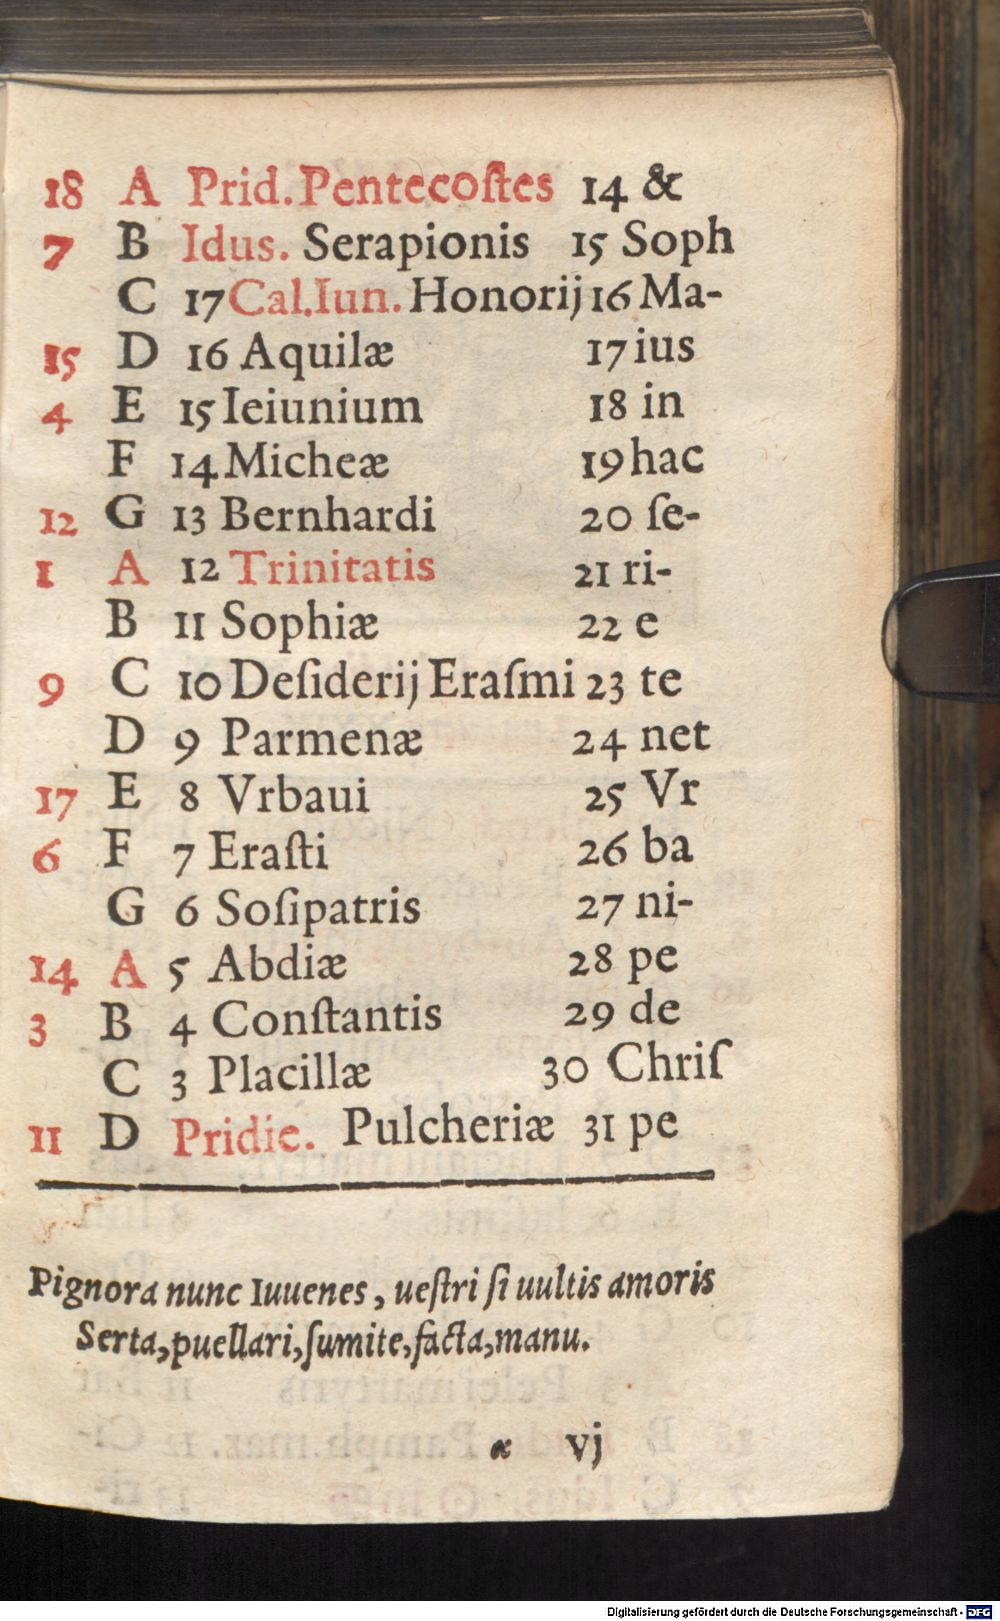 18 A Prid. Pentecoſtes 14 &
7 B Idus. Serapionis 15 Soph
C 17 Cal. Iun. Honorij 16 Ma-
15 D 16 Aquilæ 17 ius
4 E 15 Ieiunium 18 in
F 14 Micheæ 19 hac
12 G 13 Bernhardi 20 ſe-
1 A 12 Trinitatis 21 ri-
B 11 Sophiæ 22 e
9 C 10 Deſiderij Eraſmi 23 te
D 9 Parmenæ 24 net
17 E 8 Vrbaui 25 Vr
6 F 7 Eraſti 26 ba
G 6 Soſipatris 27 ni-
14 A 5 Abdiæ 28 pe
3 B 4 Conſtantis 29 de
C 3 Placillæ 30 Chriſ
11 D Pridie. Pulcheriæ 31 pe
Pignora nunc Iuuenes, ueſtri ſi uultis amoris
Serta, puellari, ſumite, facta, manu.
α vj
Digitalisierung gefördert durch die Deutsche Forschungsgemeinschaft - DFG